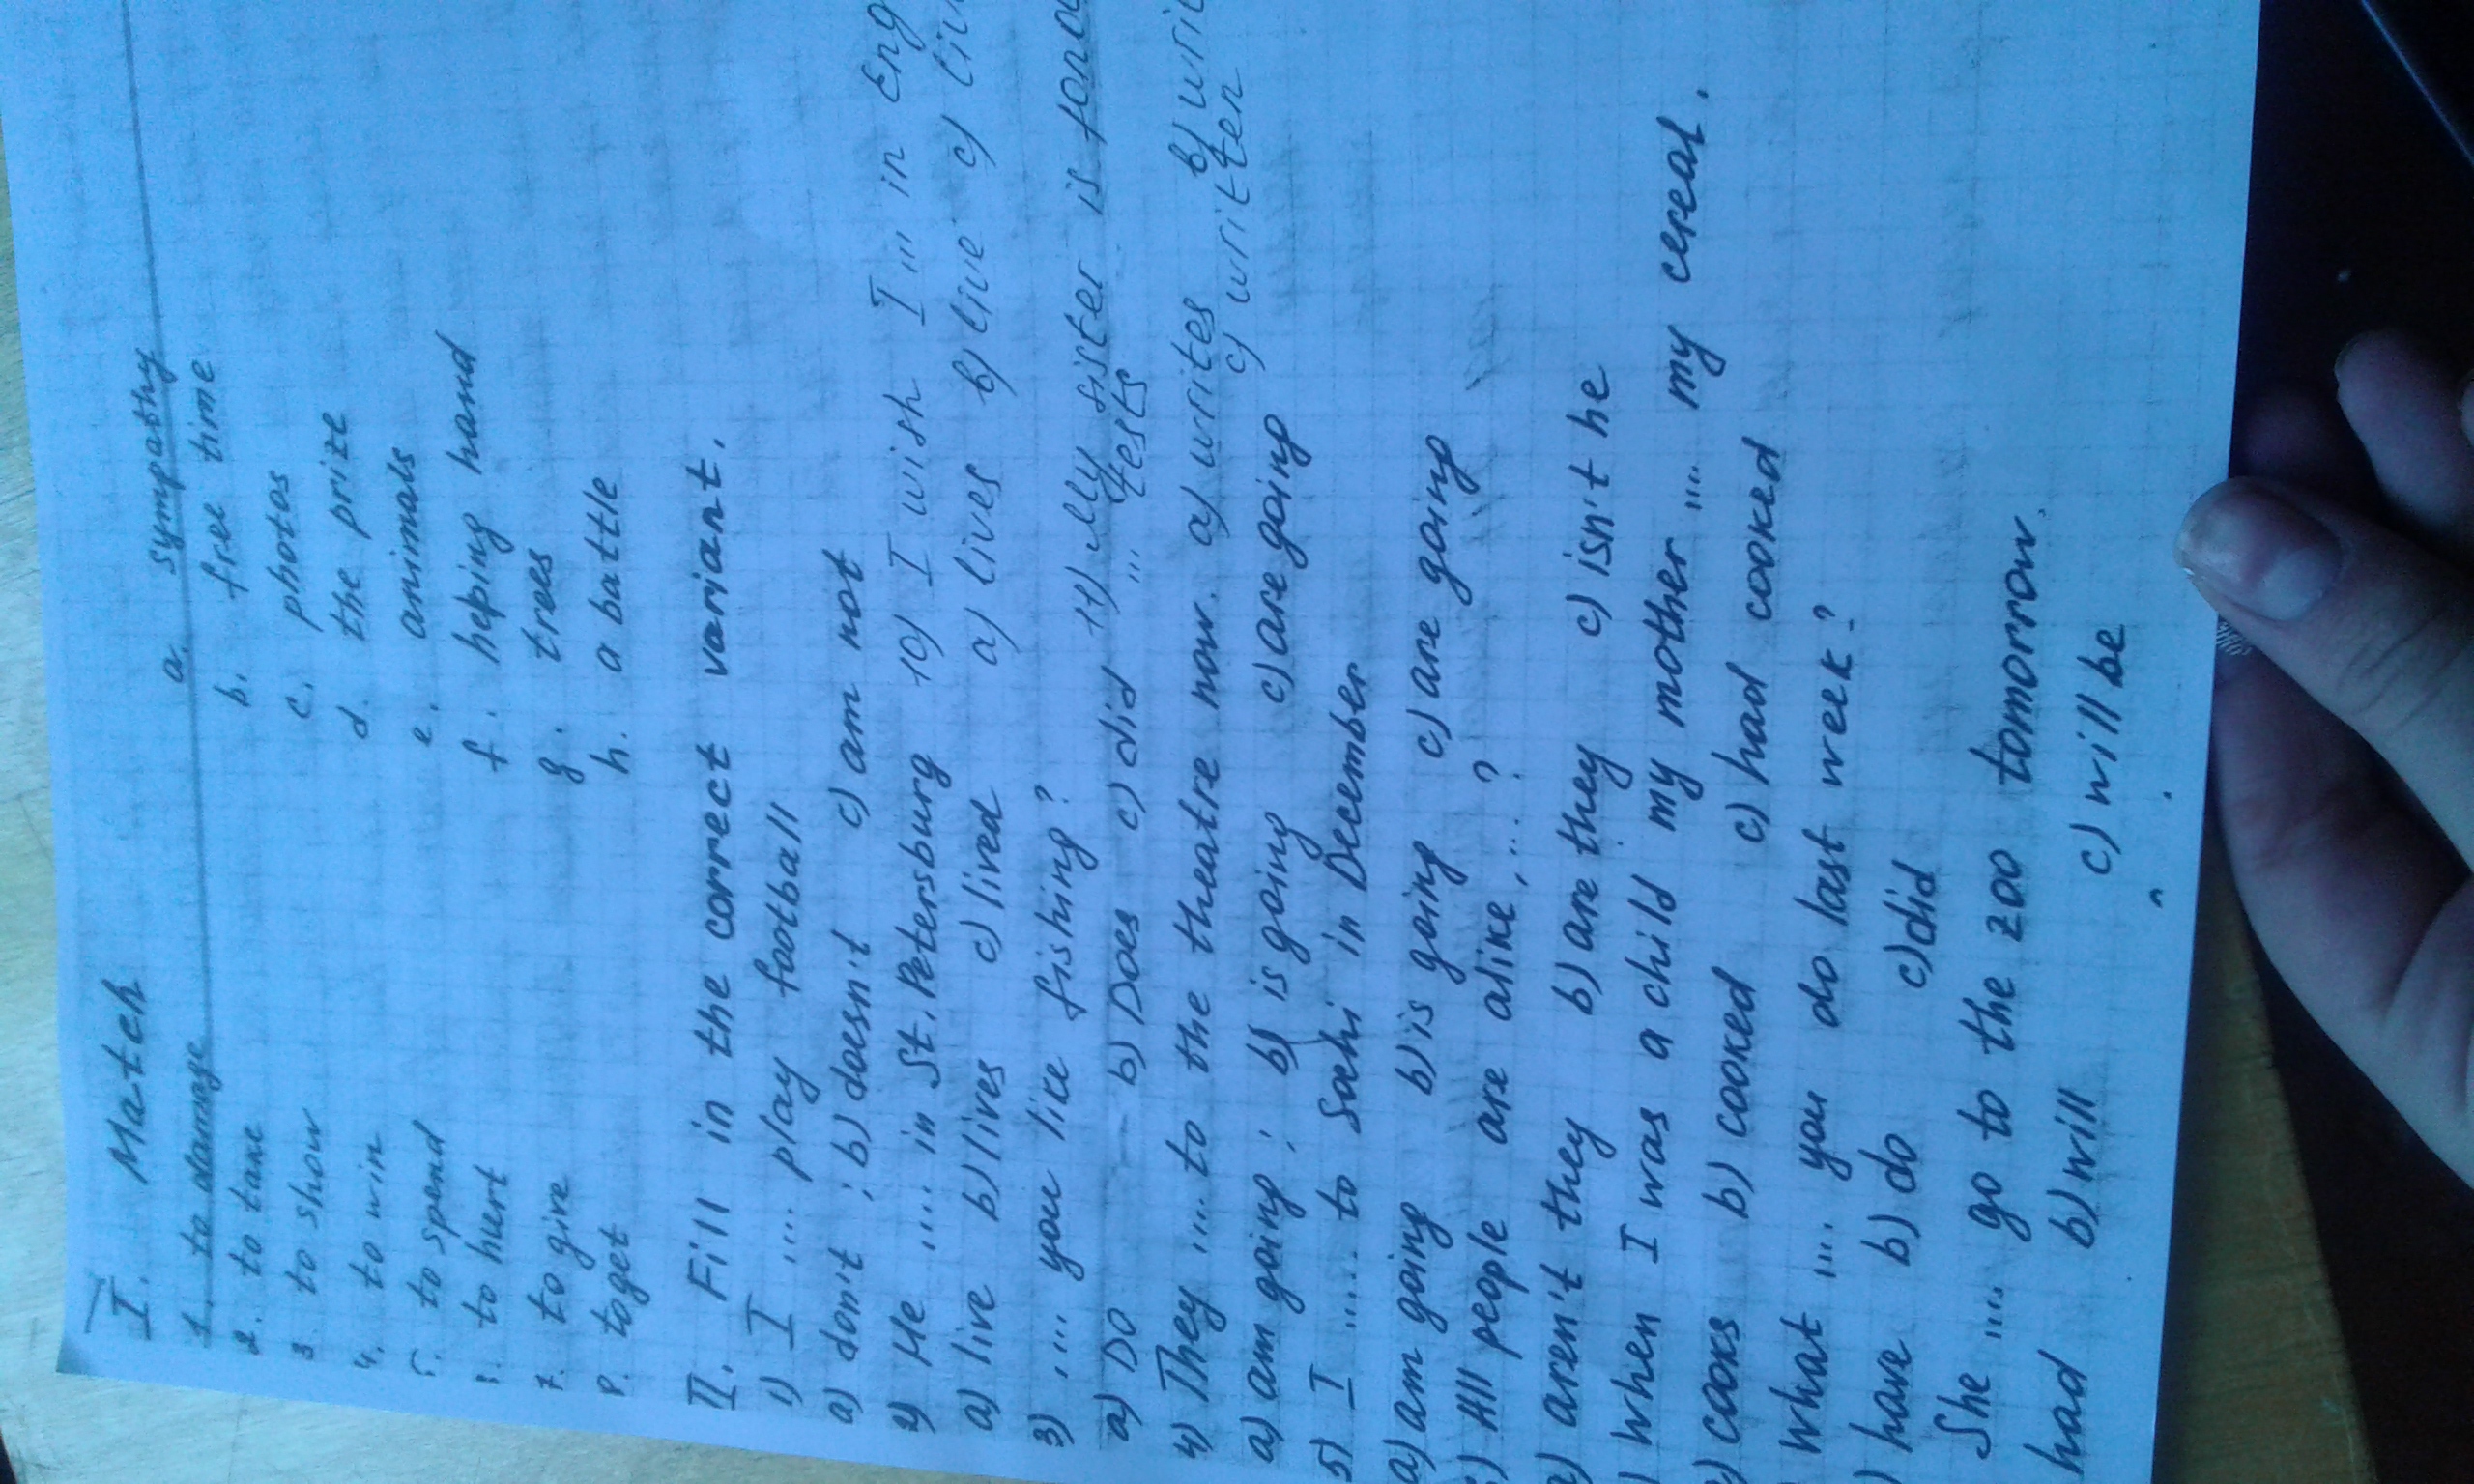 I. Match
1. to damage a. sympathy
2. to take b. free time
3. to show c. photos
4. to win d. the prize
5. to spend e. animals
to hurt f. heping hand
7. to give g. trees
8. toget h. a battle
II. Fill in the correct variant.
1) I .... play football
a) don't ; b) doesn't c) am not
2) He .... in St. Petersburg 10) I wish I ... in Eng
a) live b) lives c) lived a) lives b) live c)
3) .... you like fishing? 11) My sister is
a) Do b) Does c) did ... tests
4) They .... to the theatre now. a) writes b)
a) am going ; b) is going c) are going c) written
5) I ..... to Sochi in December
a) am going b) is going c) are going
) All people are alike, ... ?
a) aren't they b) are they c) isn't he
) when I was a child my mother .... my cereal.
a) cooks b) cooked c) had cooked
what .... you do last week?
) have b) do c) did
She .... go to the zoo tomorrow.
had b) will c) will be